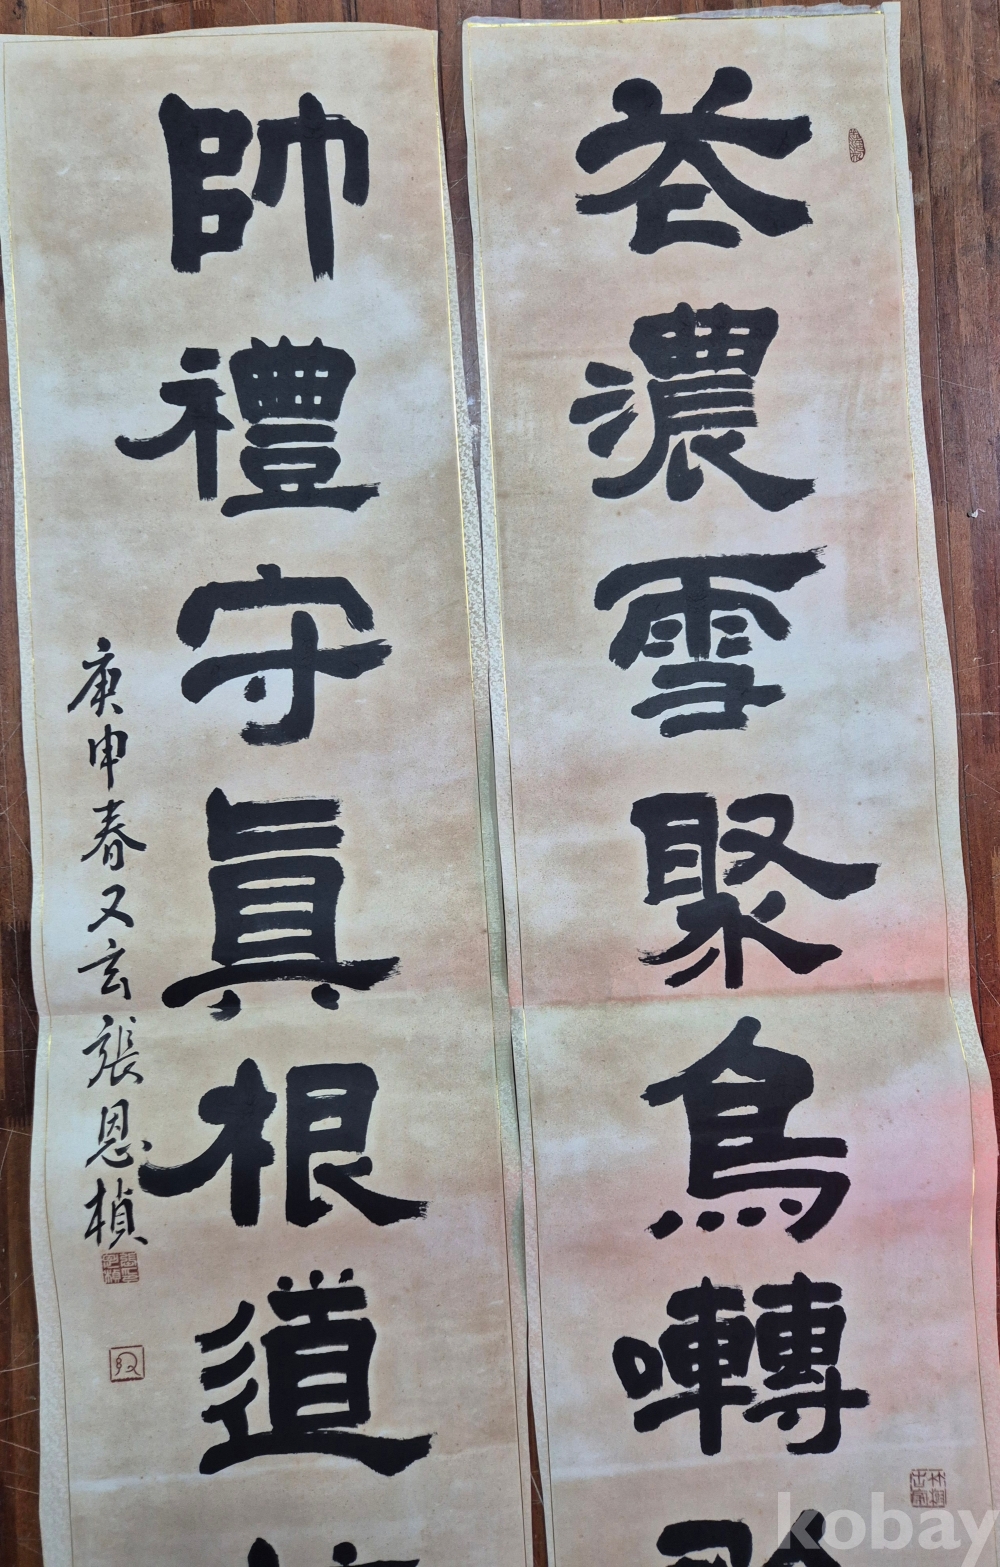 花濃雪聚鳥囀
帥禮守眞根道
庚申春又玄張恩楨
kobay